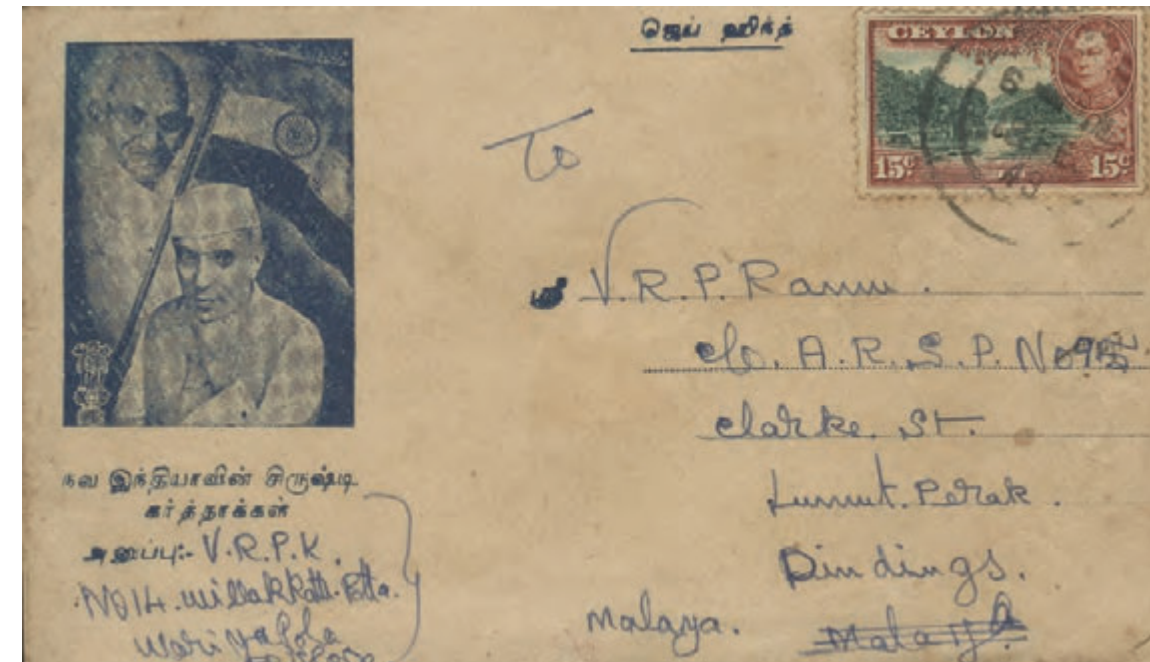 ஜெய் ஹிந்த்
CEYLON
15c 15c
To
ஸ்ரீ V.R.P. Ramu.
c/o. A.R.S.P. No
Clarke. St.
Lumut. Perak.
Dindings.
Malaya. Malaya
நவ இந்தியாவின் சிருஷ்டி
கர்த்தாக்கள்
அனுப்பு:- V.R.P.K.
No 14.
Wariyapola